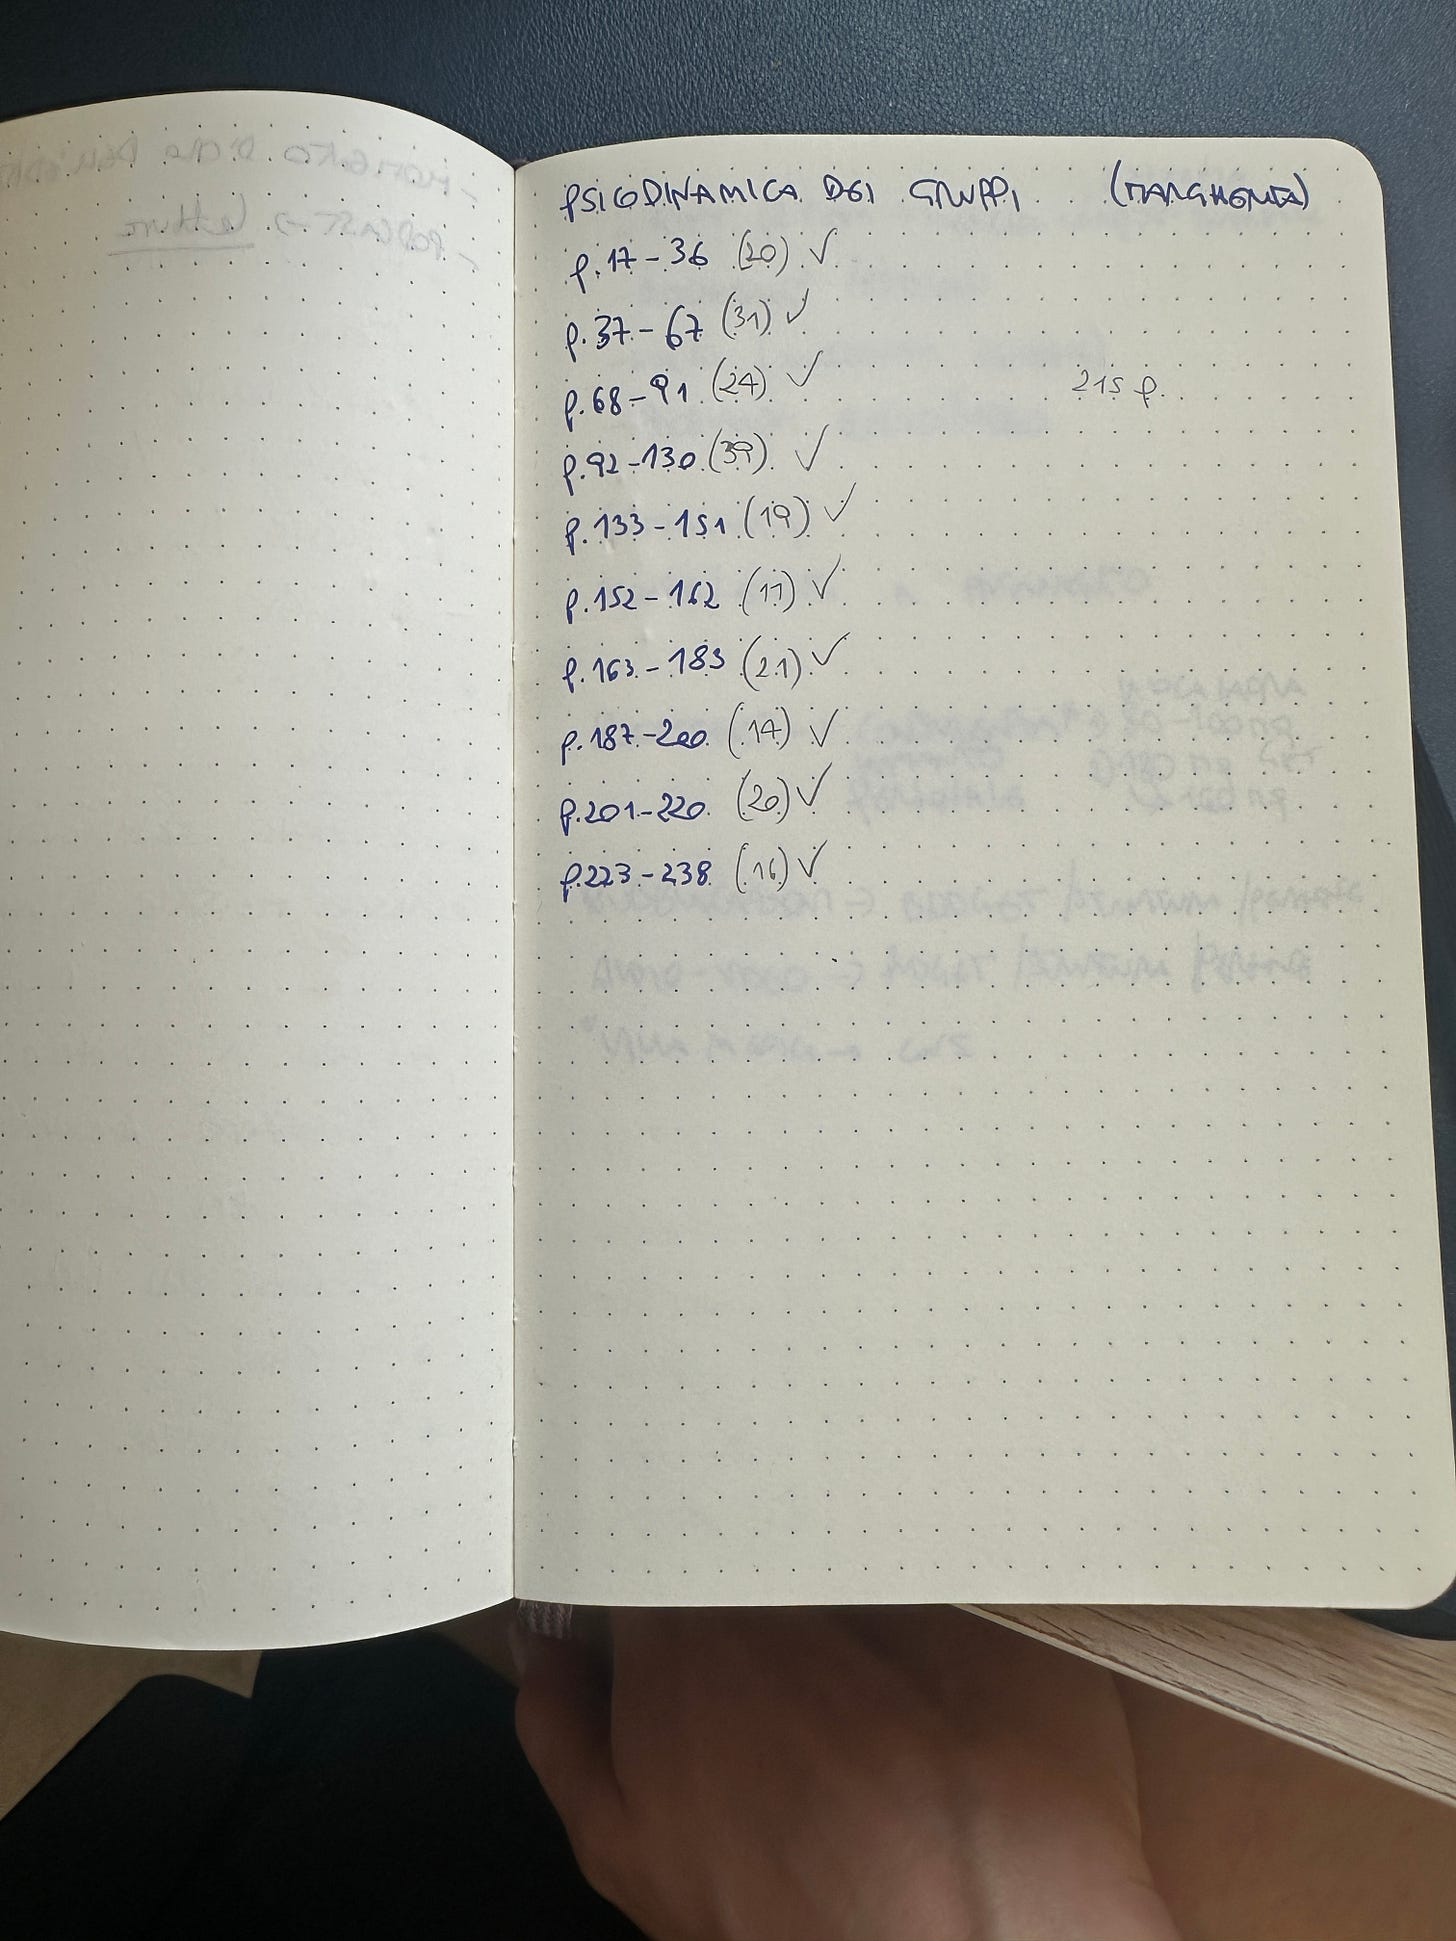 PSICODINAMICA DEI GRUPPI (MARGHERITA)
p.17-36 (20) ✓
p.37-67 (31) ✓
p.68-91 (24) ✓
215 p.
p.92-130 (39) ✓
p.133-151 (19) ✓
p.152-162 (11) ✓
p.163-183 (21) ✓
p.187-200 (14) ✓
p.201-220 (20) ✓
p.223-238 (16) ✓